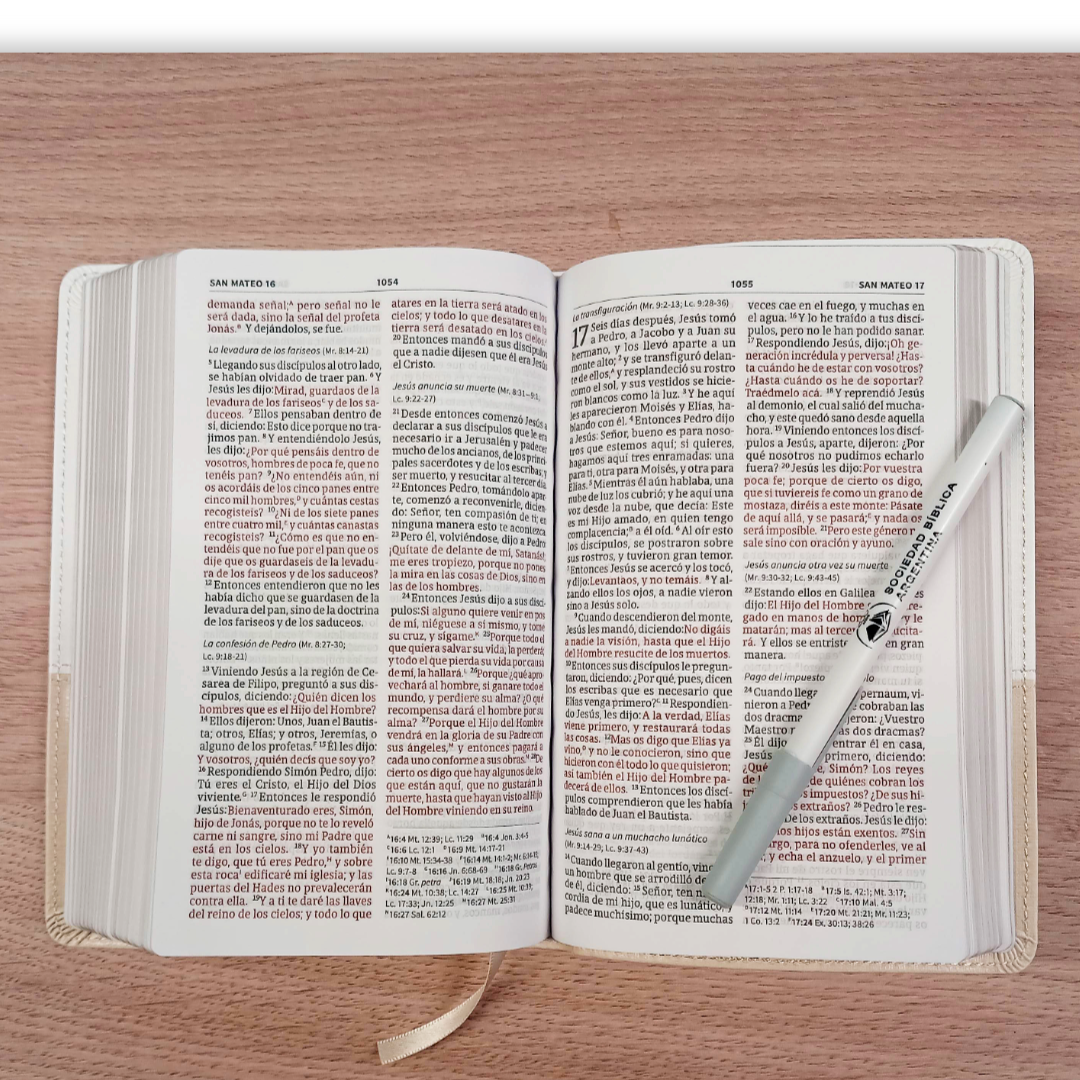 SAN MATEO 16
1054
demanda señal;ᴬ pero señal no le
será dada, sino la señal del profeta
Jonás.ᴮ Y dejándolos, se fue.
La levadura de los fariseos (Mr. 8:14-21)
⁵Llegando sus discípulos al otro lado,
se habían olvidado de traer pan. ⁶Y
Jesús les dijo:Mirad, guardaos de la
levadura de los fariseosᶜ y de los sa-
duceos. ⁷Ellos pensaban dentro de
sí, diciendo: Esto dice porque no tra-
jimos pan. ⁸Y entendiéndolo Jesús,
les dijo:¿Por qué pensáis dentro de
vosotros, hombres de poca fe, que no
tenéis pan? ⁹¿No entendéis aún, ni
os acordáis de los cinco panes entre
cinco mil hombres,ᴰ y cuántas cestas
recogisteis? ¹⁰¿Ni de los siete panes
entre cuatro mil,ᴱ y cuántas canastas
recogisteis? ¹¹¿Cómo es que no en-
tendéis que no fue por el pan que os
dije que os guardaseis de la levadu-
ra de los fariseos y de los saduceos?
¹²Entonces entendieron que no les
había dicho que se guardasen de la
levadura del pan, sino de la doctrina
de los fariseos y de los saduceos.
La confesión de Pedro (Mr. 8:27-30;
Lc. 9:18-21)
¹³Viniendo Jesús a la región de Ce-
sarea de Filipo, preguntó a sus dis-
cípulos, diciendo:¿Quién dicen los
hombres que es el Hijo del Hombre?
¹⁴Ellos dijeron: Unos, Juan el Bautis-
ta; otros, Elías; y otros, Jeremías, o
alguno de los profetas.ᶠ ¹⁵Él les dijo:
Y vosotros, ¿quién decís que soy yo?
¹⁶Respondiendo Simón Pedro, dijo:
Tú eres el Cristo, el Hijo del Dios
viviente.ᴳ ¹⁷Entonces le respondió
Jesús:Bienaventurado eres, Simón,
hijo de Jonás, porque no te lo reveló
carne ni sangre, sino mi Padre que
está en los cielos. ¹⁸Y yo también
te digo, que tú eres Pedro,ᴴ y sobre
esta rocaᴵ edificaré mi iglesia; y las
puertas del Hades no prevalecerán
contra ella. ¹⁹Y a ti te daré las llaves
del reino de los cielos; y todo lo que
atares en la tierra será atado en los
cielos; y todo lo que desatares en la
tierra será desatado en los cielos.ᴶ
²⁰Entonces mandó a sus discípulos
que a nadie dijesen que él era Jesús
el Cristo.
Jesús anuncia su muerte (Mr. 8:31—9:1;
Lc. 9:22-27)
²¹Desde entonces comenzó Jesús a
declarar a sus discípulos que le era
necesario ir a Jerusalén y padecer
mucho de los ancianos, de los princi-
pales sacerdotes y de los escribas; y
ser muerto, y resucitar al tercer día.
²²Entonces Pedro, tomándolo apar-
te, comenzó a reconvenirle, dicien-
do: Señor, ten compasión de ti; en
ninguna manera esto te acontezca.
²³Pero él, volviéndose, dijo a Pedro:
¡Quítate de delante de mí, Satanás!;
me eres tropiezo, porque no pones
la mira en las cosas de Dios, sino en
las de los hombres.
²⁴Entonces Jesús dijo a sus discí-
pulos:Si alguno quiere venir en pos
de mí, niéguese a sí mismo, y tome
su cruz, y sígame.ᴷ ²⁵Porque todo el
que quiera salvar su vida, la perderá;
y todo el que pierda su vida por causa
de mí, la hallará.ᴸ ²⁶Porque ¿qué apro-
vechará al hombre, si ganare todo el
mundo, y perdiere su alma? ¿O qué
recompensa dará el hombre por su
alma? ²⁷Porque el Hijo del Hombre
vendrá en la gloria de su Padre con
sus ángeles,ᴹ y entonces pagará a
cada uno conforme a sus obras.ᴺ ²⁸De
cierto os digo que hay algunos de los
que están aquí, que no gustarán la
muerte, hasta que hayan visto al Hijo
del Hombre viniendo en su reino.
ᴬ16:4 Mt. 12:39; Lc. 11:29 ᴮ16:4 Jon. 3:4-5
ᶜ16:6 Lc. 12:1 ᴰ16:9 Mt. 14:17-21
ᴱ16:10 Mt. 15:34-38 ᶠ16:14 Mt. 14:1-2; Mr. 6:14-15;
Lc. 9:7-8 ᴳ16:16 Jn. 6:68-69 ᴴ16:18 Gr. Petros
ᴵ16:18 Gr. petra ᴶ16:19 Mt. 18:18; Jn. 20:23
ᴷ16:24 Mt. 10:38; Lc. 14:27 ᴸ16:25 Mt. 10:39;
Lc. 17:33; Jn. 12:25 ᴹ16:27 Mt. 25:31
ᴺ16:27 Sal. 62:12
1055
SAN MATEO 17
La transfiguración (Mr. 9:2-13; Lc. 9:28-36)
17 Seis días después, Jesús tomó
a Pedro, a Jacobo y a Juan su
hermano, y los llevó aparte a un
monte alto; ²y se transfiguró delan-
te de ellos,ᴬ y resplandeció su rostro
como el sol, y sus vestidos se hicie-
ron blancos como la luz. ³Y he aquí
les aparecieron Moisés y Elías, ha-
blando con él. ⁴Entonces Pedro dijo
a Jesús: Señor, bueno es para noso-
tros que estemos aquí; si quieres,
hagamos aquí tres enramadas: una
para ti, otra para Moisés, y otra para
Elías. ⁵Mientras él aún hablaba, una
nube de luz los cubrió; y he aquí una
voz desde la nube, que decía: Este
es mi Hijo amado, en quien tengo
complacencia;ᴮ a él oíd. ⁶Al oír esto
los discípulos, se postraron sobre
sus rostros, y tuvieron gran temor.
⁷Entonces Jesús se acercó y los tocó,
y dijo:Levantaos, y no temáis. ⁸Y al-
zando ellos los ojos, a nadie vieron
sino a Jesús solo.
⁹Cuando descendieron del monte,
Jesús les mandó, diciendo:No digáis
a nadie la visión, hasta que el Hijo
del Hombre resucite de los muertos.
¹⁰Entonces sus discípulos le pregun-
taron, diciendo: ¿Por qué, pues, dicen
los escribas que es necesario que
Elías venga primero?ᶜ ¹¹Respondien-
do Jesús, les dijo:A la verdad, Elías
viene primero, y restaurará todas
las cosas. ¹²Mas os digo que Elías ya
vino,ᴰ y no le conocieron, sino que
hicieron con él todo lo que quisieron;
así también el Hijo del Hombre pa-
decerá de ellos. ¹³Entonces los discí-
pulos comprendieron que les había
hablado de Juan el Bautista.
Jesús sana a un muchacho lunático
(Mr. 9:14-29; Lc. 9:37-43)
¹⁴Cuando llegaron al gentío, vino
un hombre que se arrodilló de
de él, diciendo: ¹⁵Señor, ten
cordia de mi hijo, que es lunático,
padece muchísimo; porque muchas
veces cae en el fuego, y muchas en
el agua. ¹⁶Y lo he traído a tus discí-
pulos, pero no le han podido sanar.
¹⁷Respondiendo Jesús, dijo:¡Oh ge-
neración incrédula y perversa! ¿Has-
ta cuándo he de estar con vosotros?
¿Hasta cuándo os he de soportar?
Traédmelo acá. ¹⁸Y reprendió Jesús
al demonio, el cual salió del mucha-
cho, y este quedó sano desde aquella
hora. ¹⁹Viniendo entonces los discí-
pulos a Jesús, aparte, dijeron: ¿Por
qué nosotros no pudimos echarlo
fuera? ²⁰Jesús les dijo:Por vuestra
poca fe; porque de cierto os digo,
que si tuviereis fe como un grano de
mostaza, diréis a este monte: Pásate
de aquí allá, y se pasará;ᴱ y nada os
será imposible. ²¹Pero este género
sale sino con oración y ayuno.
Jesús anuncia otra vez su muerte
(Mr. 9:30-32; Lc. 9:43-45)
²²Estando ellos en Galilea
dijo:El Hijo del Hombre
gado en manos de hom
matarán; mas al tercer
rá. Y ellos se entriste en gran
manera.
Pago del impuesto
²⁴Cuando llega pernaum, vi-
nieron a Ped cobraban las
dos dracma jeron: ¿Vuestro
Maestro las dos dracmas?
²⁵Él dijo entrar él en casa,
Jesús primero, diciendo:
¿Qué Simón? Los reyes
de la de quiénes cobran los
impuestos? ¿De sus hi-
extraños? ²⁶Pedro le res-
De los extraños. Jesús le dijo:
los hijos están exentos. ²⁷Sin
rgo, para no ofenderles, ve al
y echa el anzuelo, y el primer
ᴬ17:1-5 2 P. 1:17-18 ᴮ17:5 Is. 42:1; Mt. 3:17;
12:18; Mr. 1:11; Lc. 3:22 ᶜ17:10 Mal. 4:5
ᴰ17:12 Mt. 11:14 ᴱ17:20 Mt. 21:21; Mr. 11:23;
1 Co. 13:2 ᶠ17:24 Ex. 30:13; 38:26
SOCIEDAD BÍBLICA
ARGENTINA